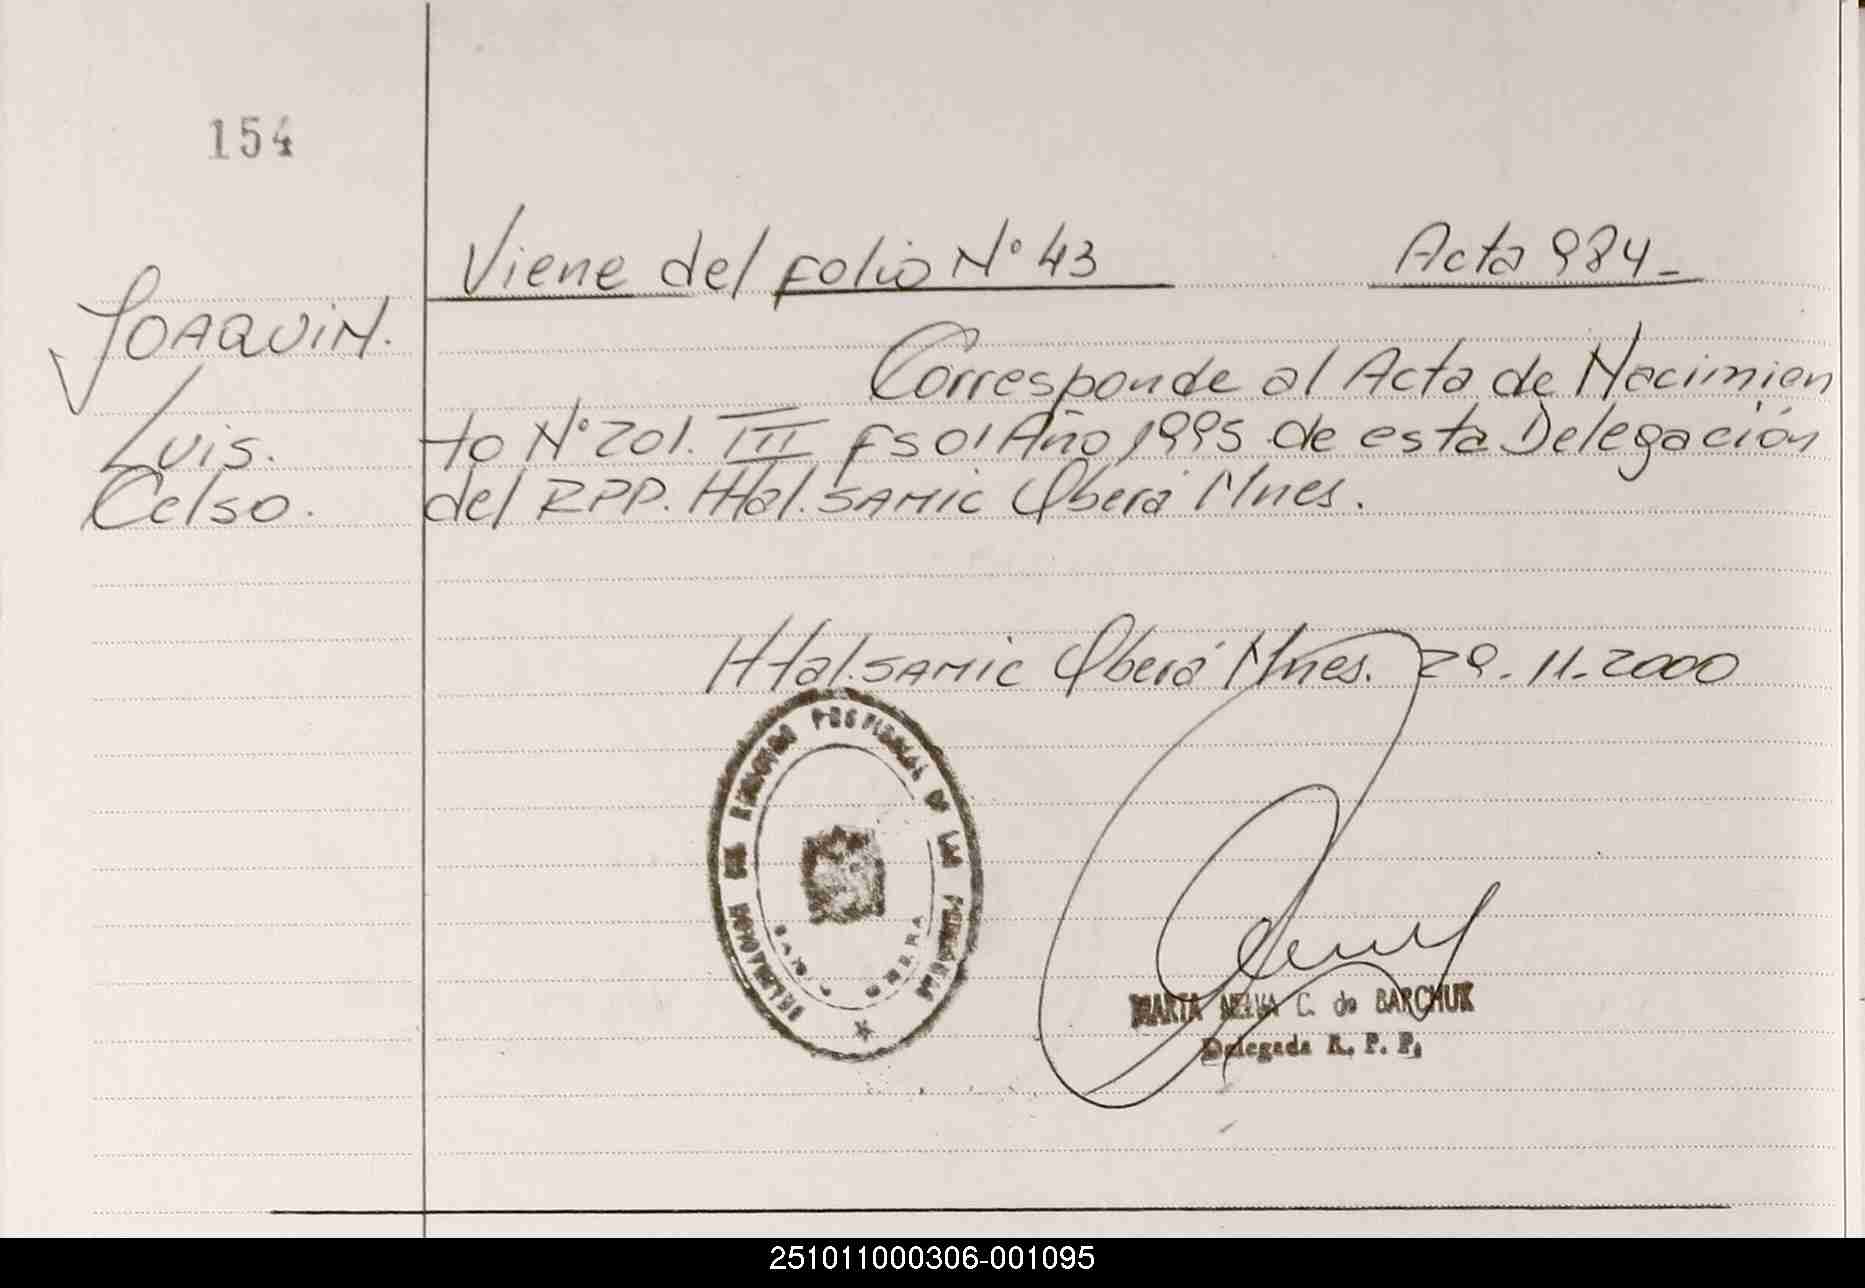 154
Viene del folio N° 43 Acta 984_
JOAQUIN.
Corresponde al Acta de Nacimien
Luis.
to N° 201. III FS 01 Año 1995 de esta Delegación
Celso.
del RPP. HHal. SAMIC Oberá Mnes.
HHal. SAMIC Oberá Mnes. 29. 11. 2000
DELEGACION DE REGISTRO PROVINCIAL DE LAS PERSONAS
OBERA
MARTA NELVA C. de BARCHUK
Delegada R. P. P.
251011000306-001095